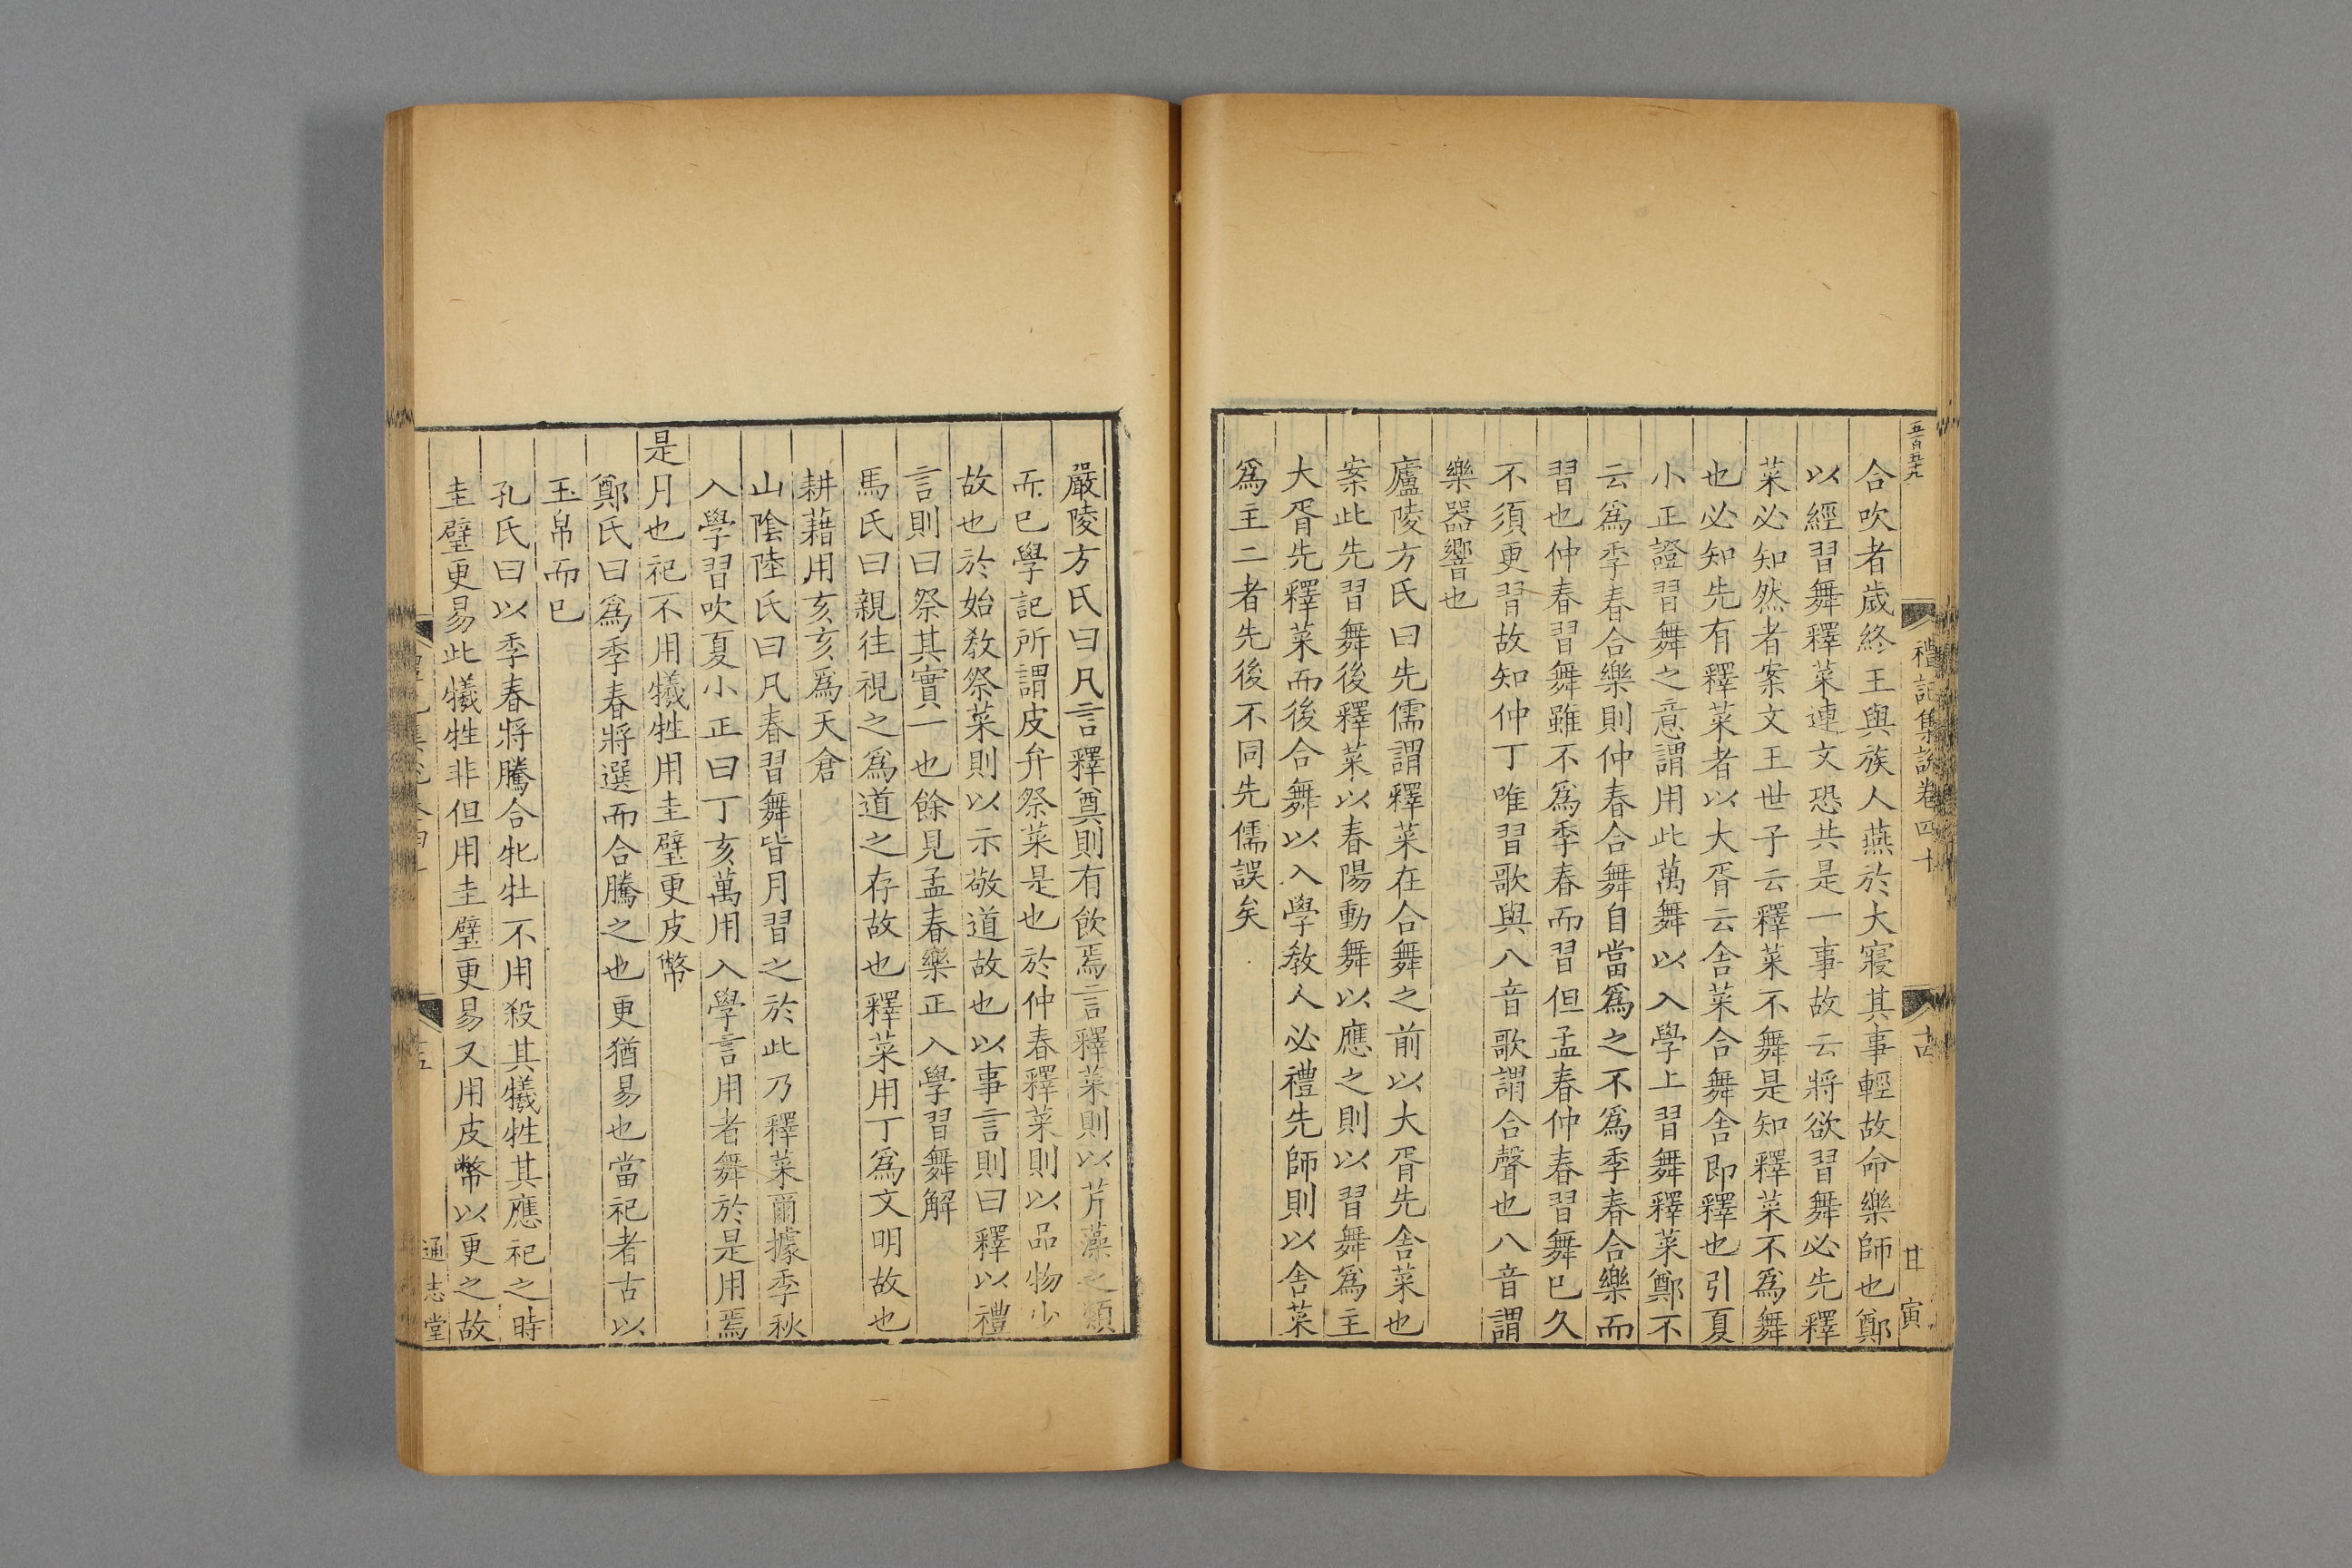 五百五十九
禮記集說卷四十
十四
甘寅
合吹者歲終王與族人燕於大寢其事輕故命樂師也鄭
以經習舞釋菜連文恐共是一事故云將欲習舞必先釋
菜必知然者案文王世子云釋菜不舞是知釋菜不爲舞
也必知先有釋菜者以大胥云舍菜合舞舍即釋也引夏
小正證習舞之意謂用此萬舞以入學上習舞釋菜鄭不
云爲季春合樂則仲春合舞自當爲之不爲季春合樂而
習也仲春習舞雖不爲季春而習但孟春仲春習舞已久
不須更習故知仲丁唯習歌與八音歌謂合聲也八音謂
樂器響也
廬陵方氏曰先儒謂釋菜在合舞之前以大胥先舍菜也
案此先習舞後釋菜以春陽動舞以應之則以習舞爲主
大胥先釋菜而後合舞以入學教人必禮先師則以舍菜
爲主二者先後不同先儒誤矣
嚴陵方氏曰凡言釋奠則有飲焉言釋菜則以芹藻之類
而已學記所謂皮弁祭菜是也於仲春釋菜則以品物少
故也於始教祭菜則以示敬道故也以事言則曰釋以禮
言則曰祭其實一也餘見孟春樂正入學習舞解
馬氏曰親往視之爲道之存故也釋菜用丁爲文明故也
耕藉用亥亥爲天倉
山陰陸氏曰凡春習舞皆月習之於此乃釋菜爾據季秋
入學習吹夏小正曰丁亥萬用入學言用者舞於是用焉
是月也祀不用犧牲用圭璧更皮幣
鄭氏曰爲季春將選而合騰之也更猶易也當祀者古以
玉帛而已
孔氏曰以季春將騰合牝牡不用殺其犧牲其應祀之時
圭璧更易此犧牲非但用圭璧更易又用皮幣以更之故
通志堂